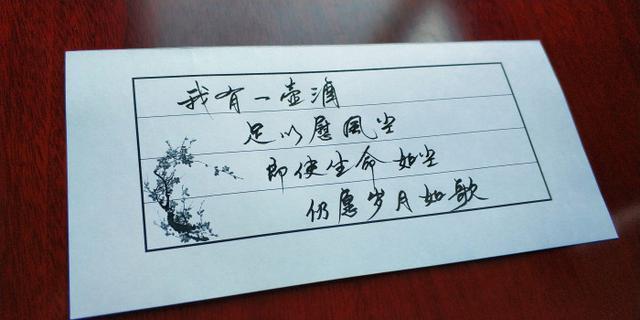 我有一壶酒
足以慰风尘
即使生命如尘
仍愿岁月如歌